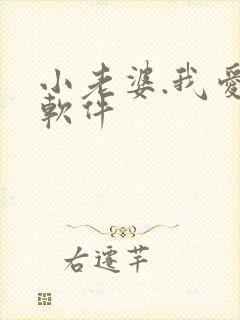 小老婆.我愛
軟件
右遷芊